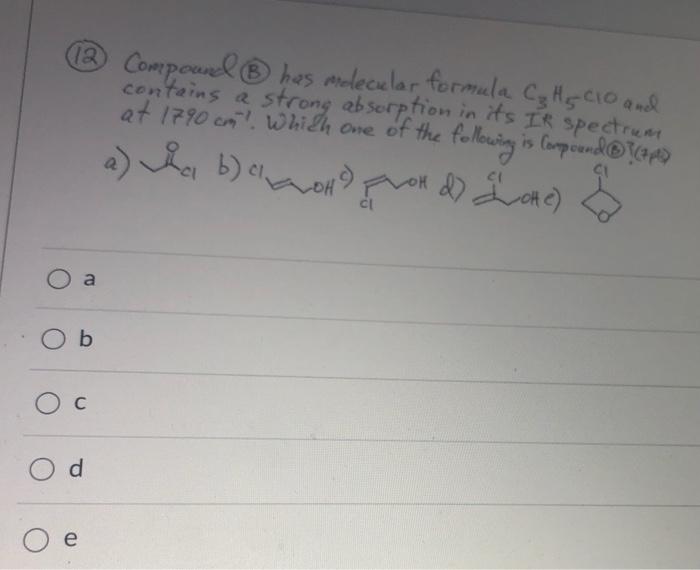 12 Compound B has molecular formula C3H5ClO and
contains a strong absorption in its IR spectrum
at 1790 cm-1. Which one of the following is Compound B? (7pts)
a) O Cl b) Cl OH c) OH Cl d) Cl OH e) Cl O
a
b
c
d
e